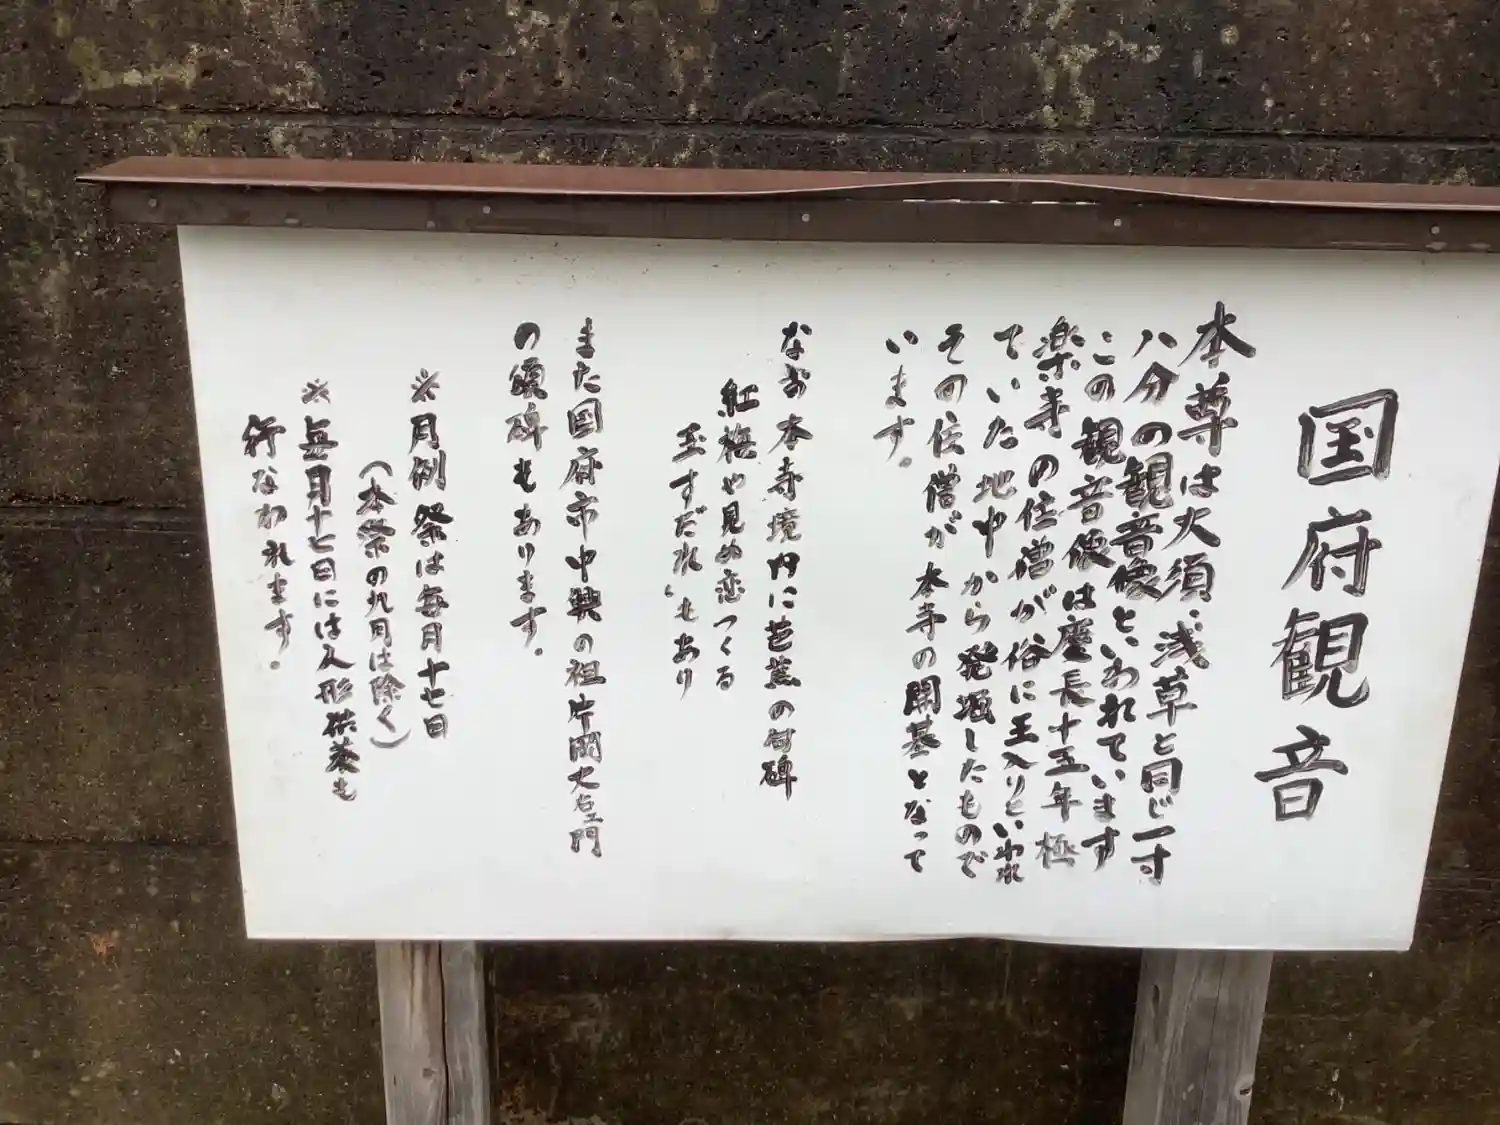 国府観音
本尊は大須、浅草と同じ一寸
八分の観音像といわれています
この観音像は慶長十五年極
楽寺の住僧が俗に玉入りといわれ
ていた地中から発掘したもので
その住僧が本寺の開基となって
います。
なお本寺境内に芭蕉の句碑
紅梅や見ぬ恋つくる
玉すだれ、もあり
また国府市中興の祖片岡大左エ門
の頌碑もあります。
※月例祭は毎月十七日
(本祭の九月は除く)
※毎月十七日には人形供養も
行なわれます。